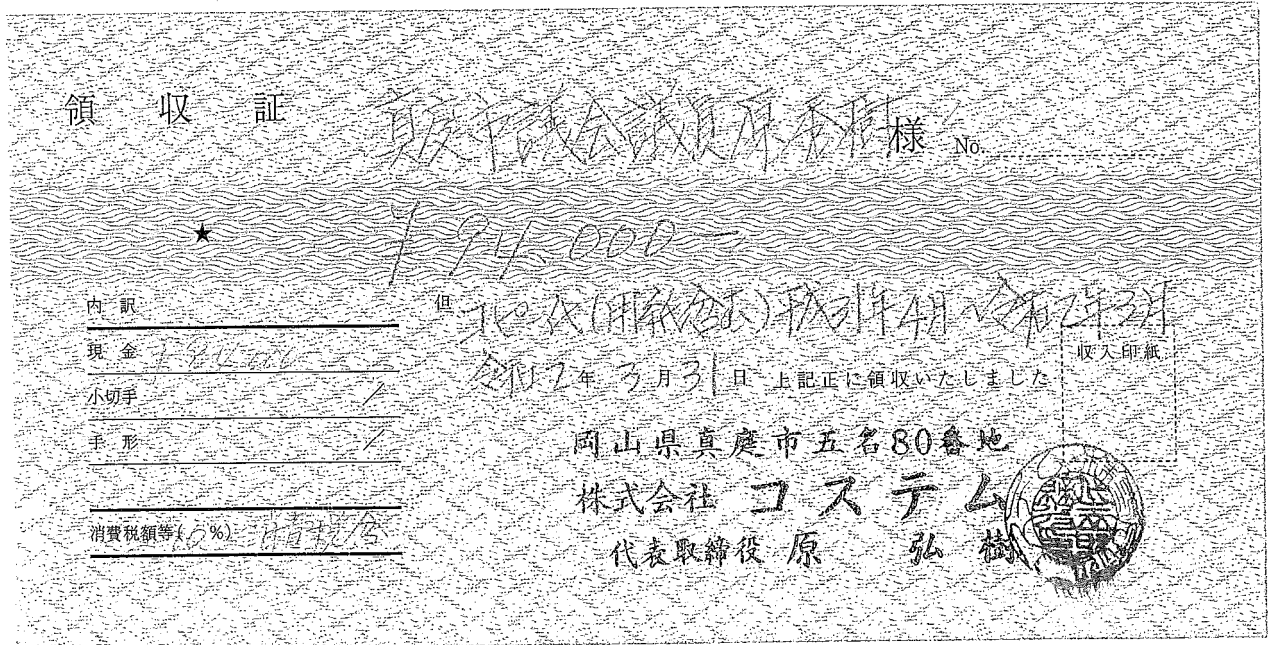 領収証 真庭市議会議員原秀樹様 No.
★ ¥94,000—
但 コピー代(用紙含む)平成31年4月〜令和2年3月
令和2年3月31日 上記正に領収いたしました
収入印紙
内訳
現金 ¥94,000
小切手 /
手形 /
消費税額等(10%) 消費税含
岡山県真庭市五名80番地
株式会社 コステム
代表取締役 原 弘樹